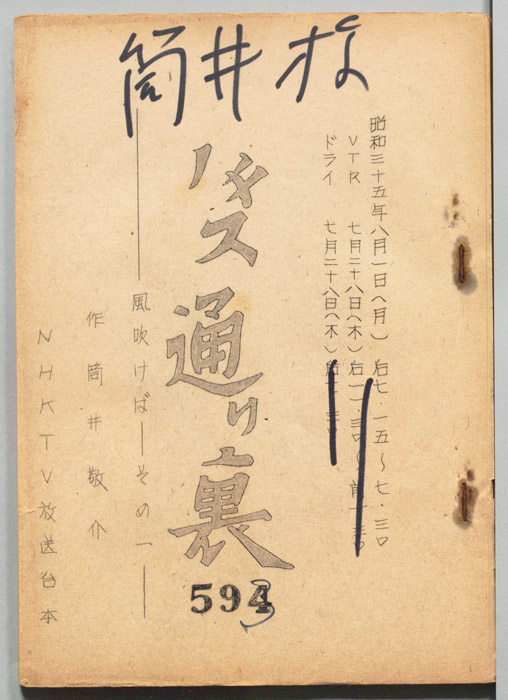 筒井様
昭和三十五年八月一日(月) 后七・一五〜七・三〇
VTR 七月二十八日(木) 后一一・三〇〜前一・三〇
ドライ 七月二十八日(木) 后
バス通り裏
593
――風吹けば―その一――
作 筒井敬介
NHKTV放送台本